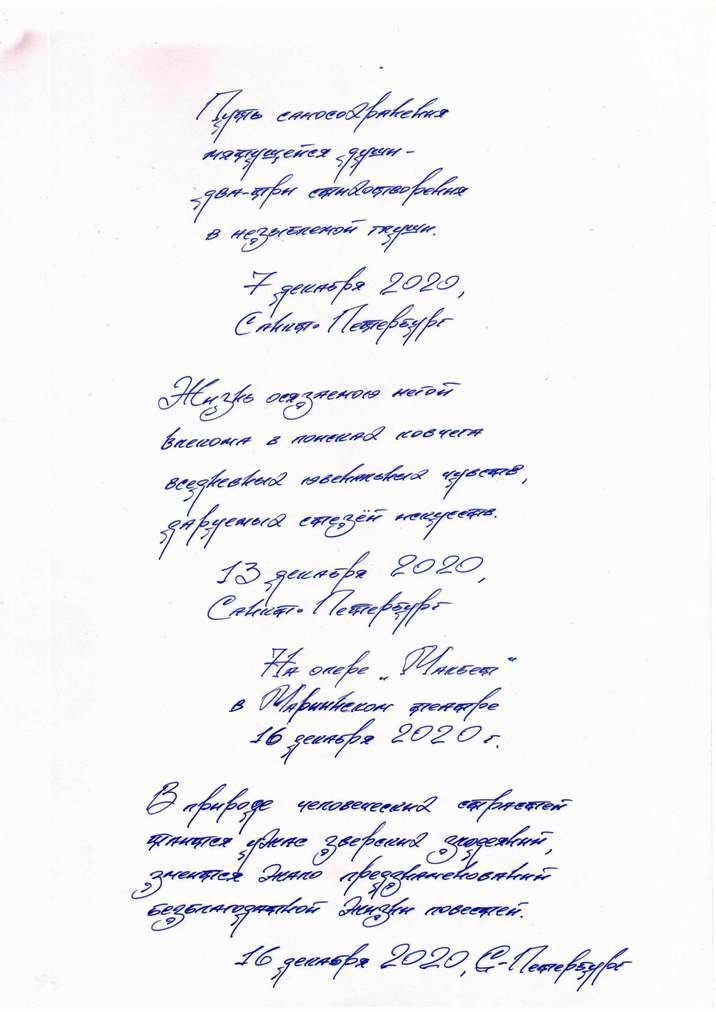 Путь самосохранения
мятущейся души -
два-три стихотворения
в незыблемой глуши.
7 декабря 2020,
Санкт-Петербург
Жизнь осязаемою негой
влекома в поисках ковчега
вседневных ювентных чувств,
даруемых стезёй искусств.
13 декабря 2020,
Санкт-Петербург
На опере „Макбет“
в Мариинском театре
16 декабря 2020 г.
В природе человеческих страстей
таится ужас зверских злодеяний,
змеится жало предзнаменований
безблагодатной жизни повестей.
16 декабря 2020, С-Петербург